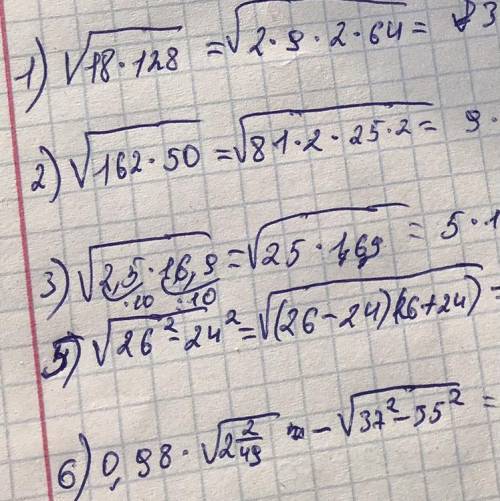 1) √18·128 = √2·9·2·64 = 3
2) √162·50 = √81·2·25·2 = 9·
3) √2,5·16,9 = √25·1,69 = 5·1
·10 :10
5) √26²-24² = √(26-24)(26+24) =
6) 0,98·√2 2/49 - √37²-35² =